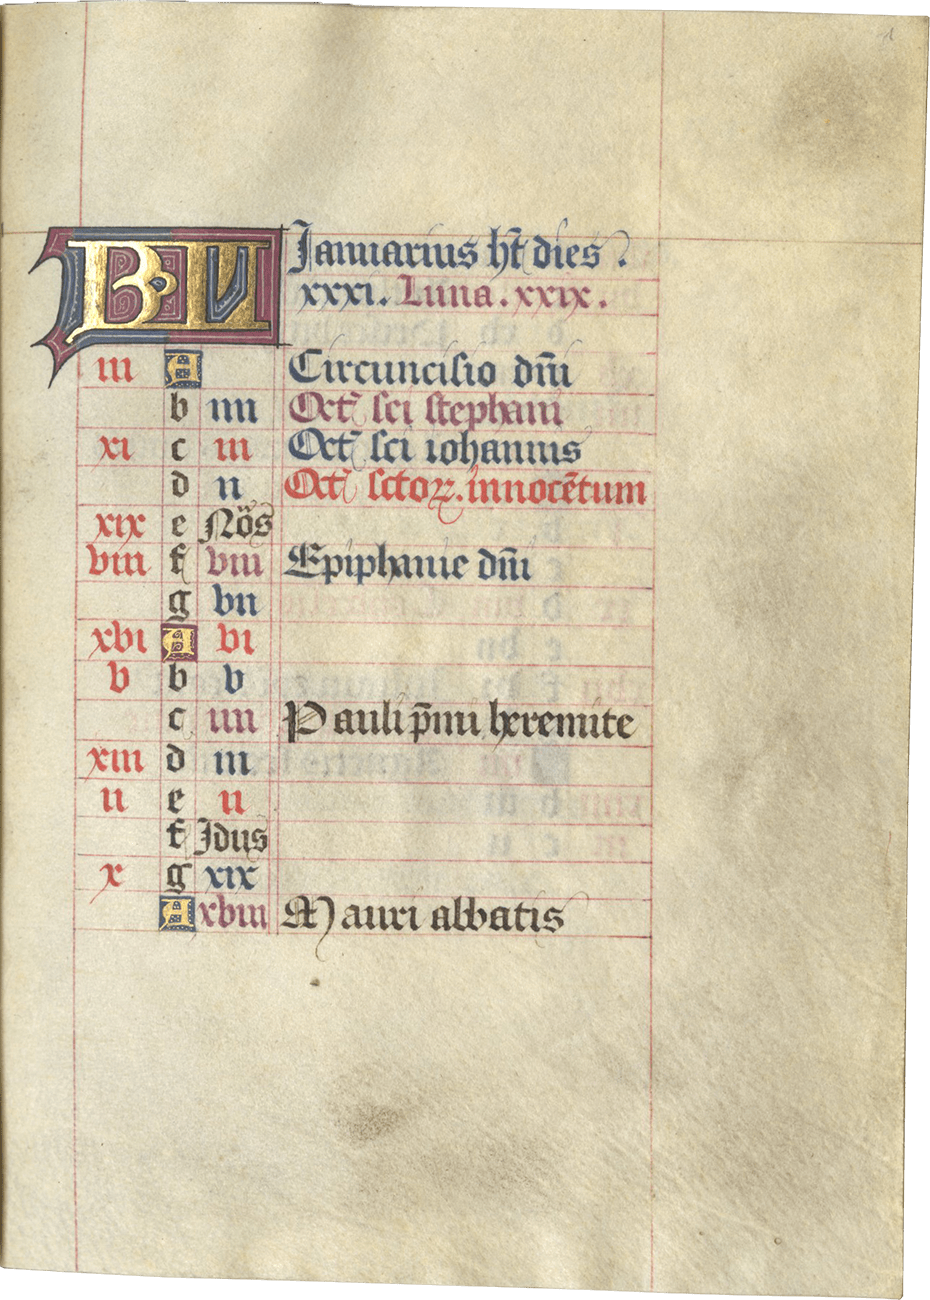 1
KL Januarius ht dies.
xxxi. Luna. xxix.
iii A Circuncisio dm̄i
b iiii Oct sci stephani
xi c iii Oct sci iohannis
d ii Oct sctoꝝ. innocētum
xix e Nōs
viii f viii Epiphanie dm̄i
g vii
xvi A vi
v b v
c iiii Pauli p̄mi heremite
xiii d iii
ii e ii
f Idus
x g xix
A xviii Mauri abbatis